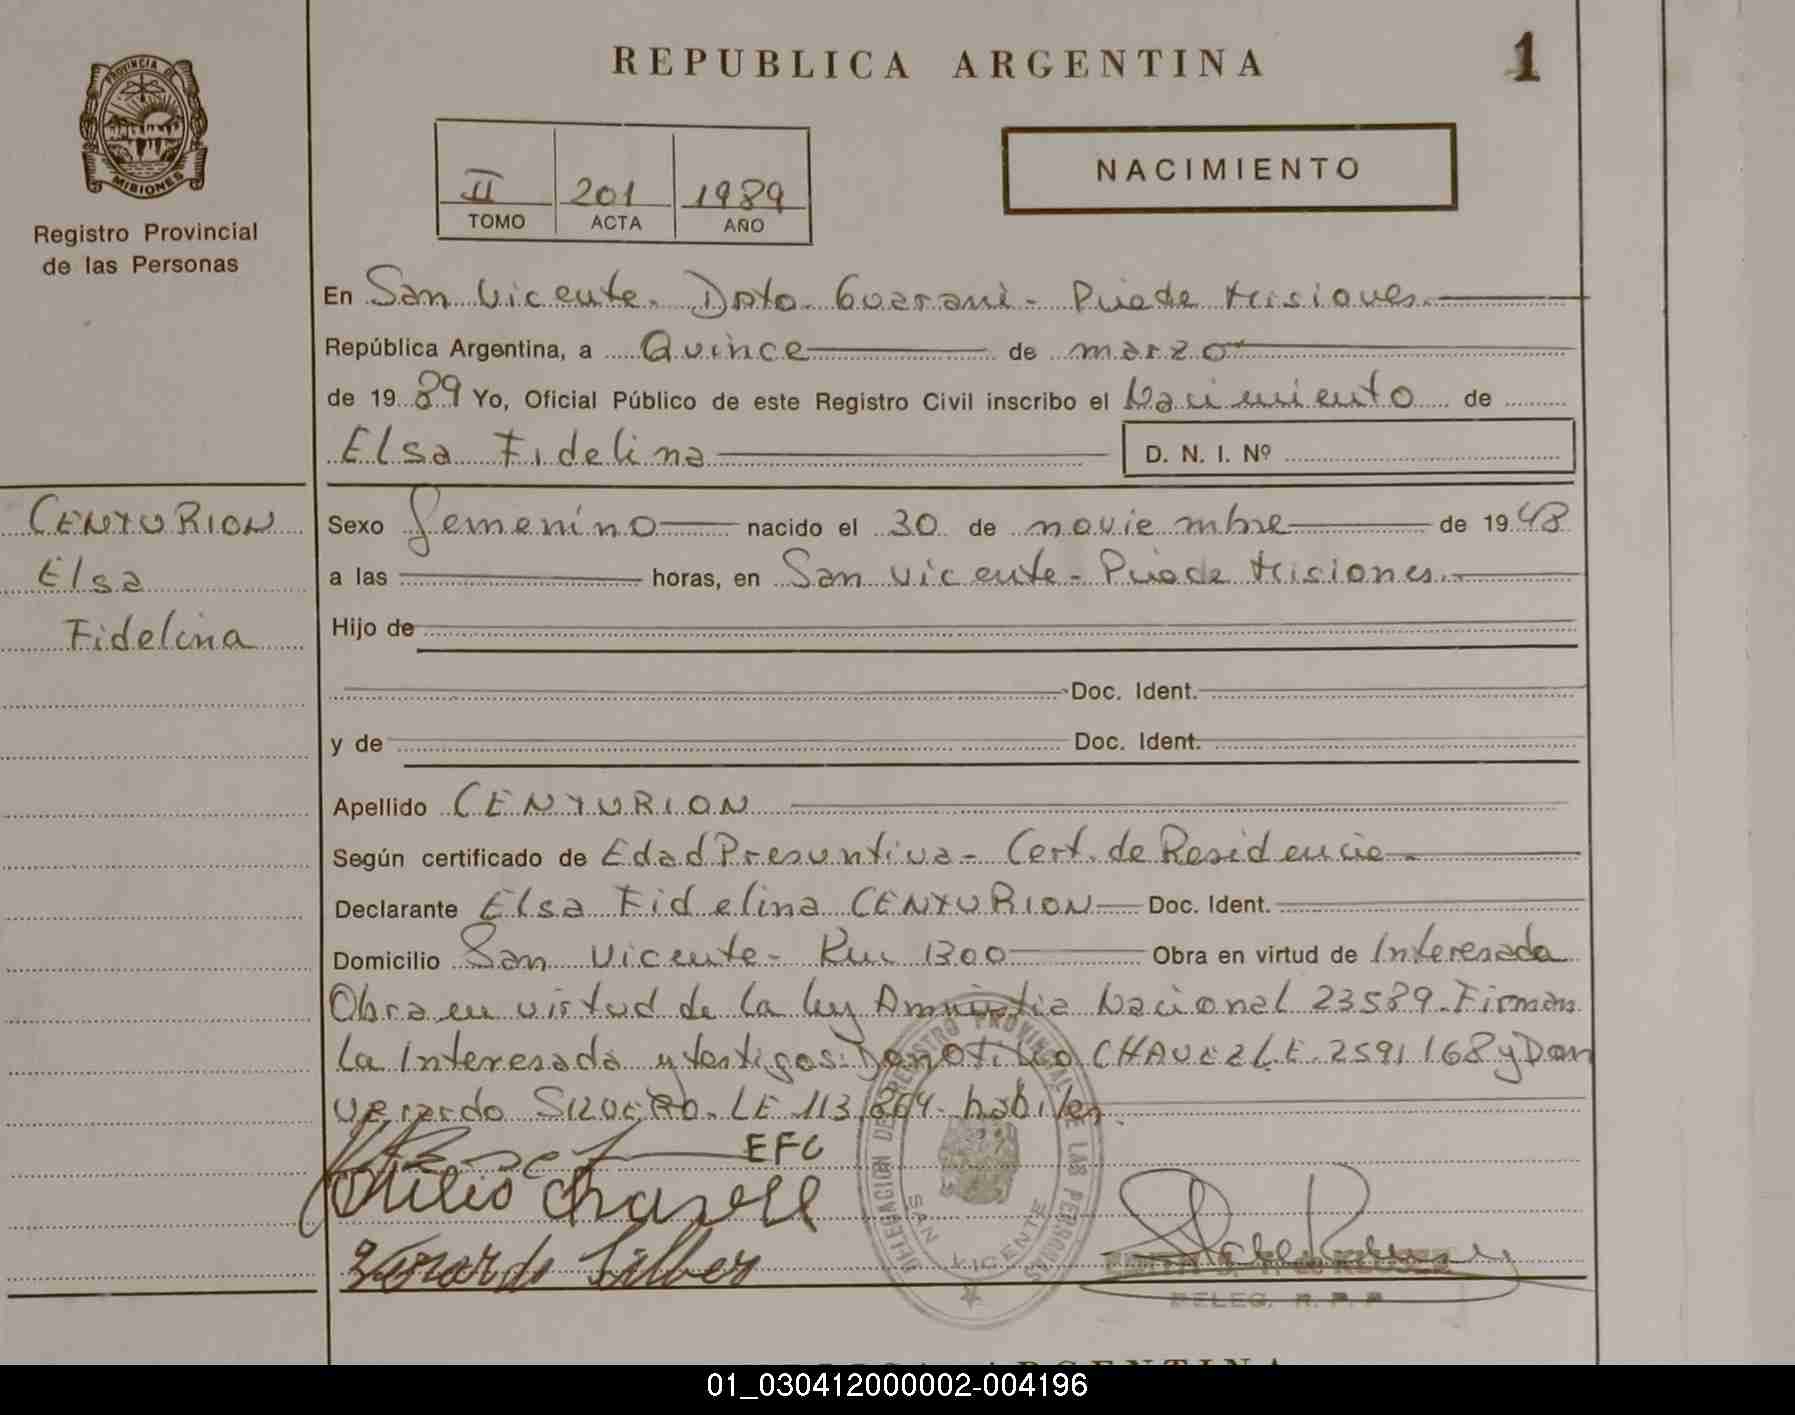 REPUBLICA ARGENTINA
1
PROVINCIA DE
MISIONES
Registro Provincial
de las Personas
NACIMIENTO
II 201 1989
TOMO ACTA AÑO
En San Vicente. Dpto. Guarani - Pciade Misiones.
República Argentina, a Quince de marzo
de 1989 Yo, Oficial Público de este Registro Civil inscribo el Nacimiento de
Elsa Fidelina
D. N. I. Nº
CENTURION
Elsa
Fidelina
Sexo Femenino nacido el 30 de noviembre de 1948
a las horas, en San Vicente - Pciade Misiones.
Hijo de
Doc. Ident.
y de Doc. Ident.
Apellido CENTURION
Según certificado de Edad Presuntiva - Cert. de Residencia
Declarante Elsa Fidelina CENTURION Doc. Ident.
Domicilio San Vicente - Km 1300 Obra en virtud de Interesada
Obra en virtud de la ley Amnistia Nacional 23589. Firman
la Interesada y testigos: Don Otilio CHAVEZ L.E. 2591168 y Don
habiles.
EFC
DELEGACION DEL REGISTRO PROVINCIAL DE LAS PERSONAS
SAN VICENTE
DELEG. R. P. P.
ARGENTINA
01_030412000002-004196